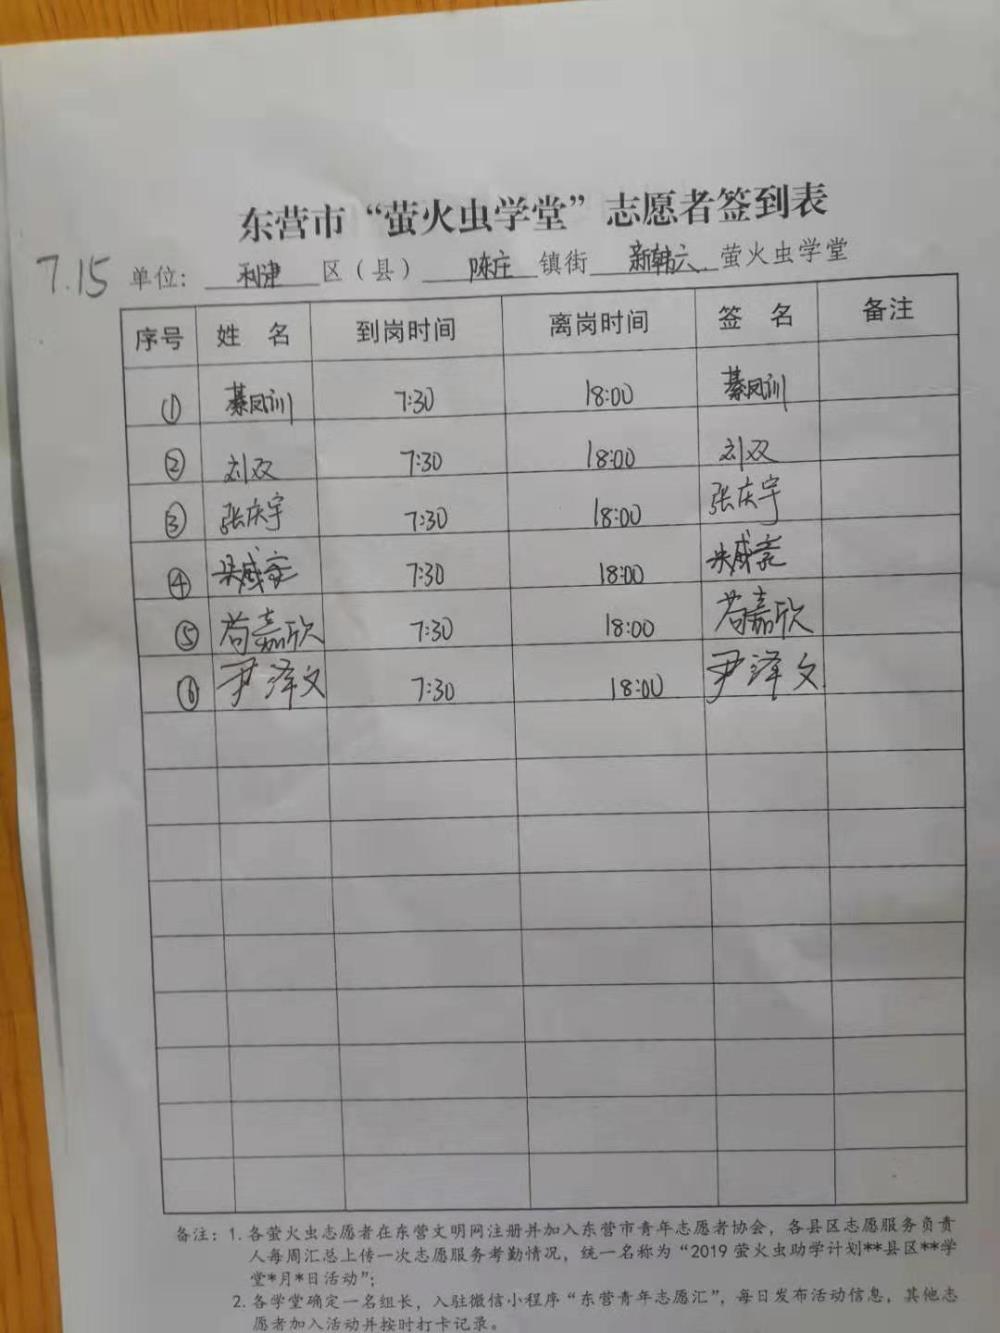 东营市“萤火虫学堂”志愿者签到表
7.15 单位: 利津 区(县) 陈庄 镇街 新韩六 萤火虫学堂
序号 姓 名 到岗时间 离岗时间 签 名 备注
① 綦凤训 7:30 18:00 綦凤训
② 刘双 7:30 18:00 刘双
③ 张庆宇 7:30 18:00 张庆宇
④ 7:30 18:00
⑤ 苟嘉欣 7:30 18:00 苟嘉欣
⑥ 尹泽文 7:30 18:00 尹泽文
备注: 1. 各萤火虫志愿者在东营文明网注册并加入东营市青年志愿者协会, 各县区志愿服务负责
人每周汇总上传一次志愿服务考勤情况, 统一名称为“2019 萤火虫助学计划**县区**学
堂*月*日活动”;
2. 各学堂确定一名组长, 入驻微信小程序“东营青年志愿汇”, 每日发布活动信息, 其他志
愿者加入活动并按时打卡记录。